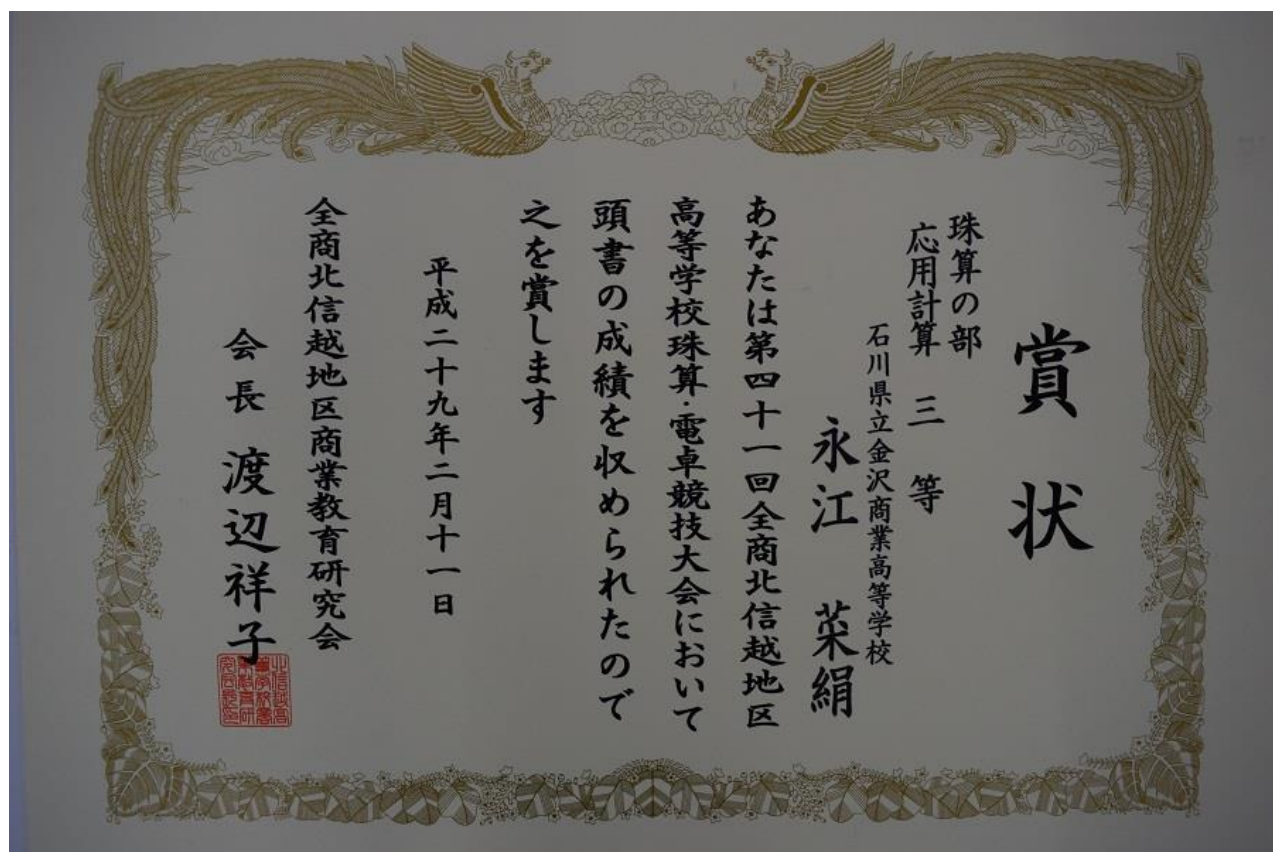 賞状
珠算の部
応用計算 三等
石川県立金沢商業高等学校
永江 菜絹
あなたは第四十一回全商北信越地区
高等学校珠算・電卓競技大会において
頭書の成績を収められたので
之を賞します
平成二十九年二月十一日
全商北信越地区商業教育研究会
会長 渡辺祥子